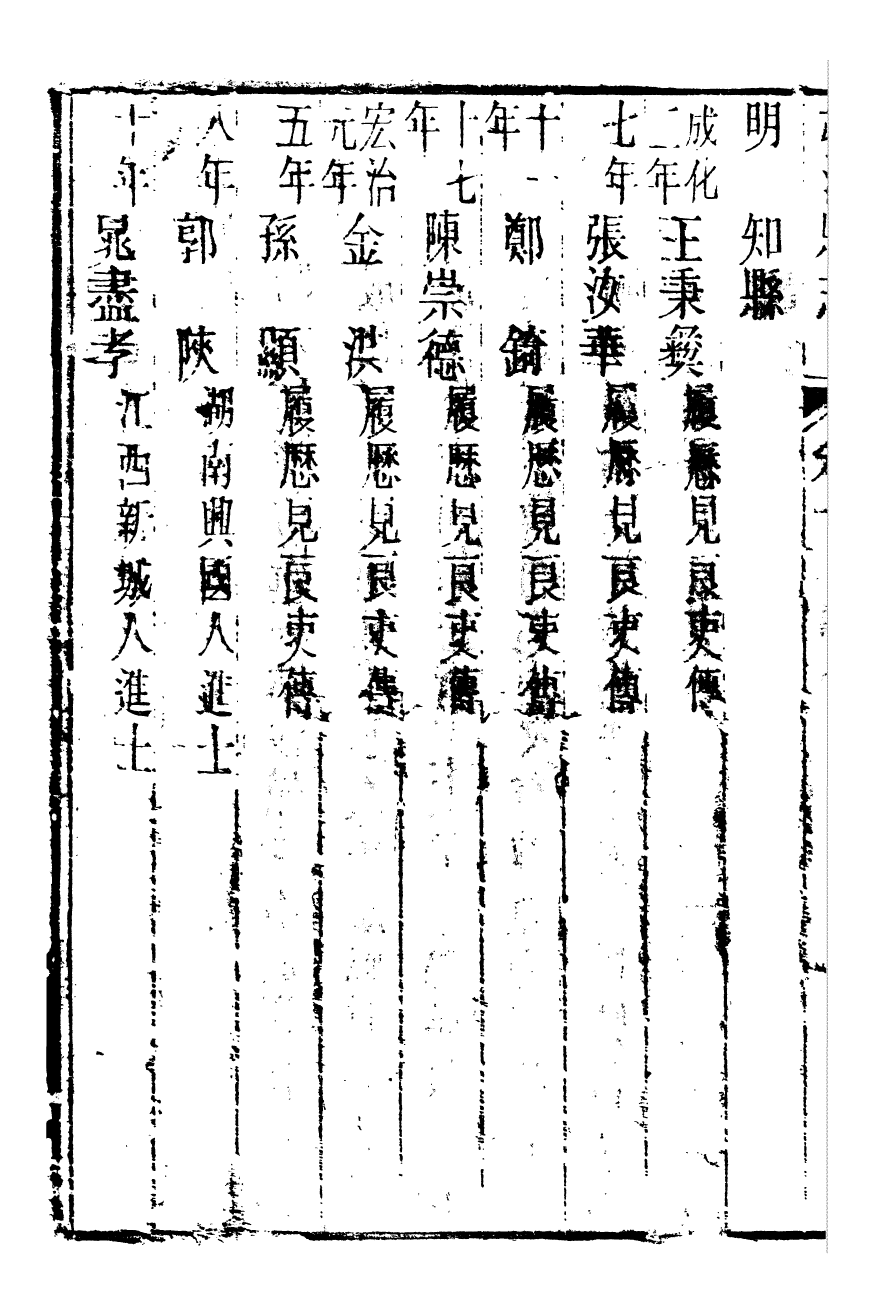 明　知縣
成化二年　王秉彞　履歷見良吏傳
七年　張汝華　履歷見良吏傳
十一年　鄭錡　履歷見良吏傳
十七年　陳崇德　履歷見良吏傳
宏治元年　金洪　履歷見良吏傳
五年　孫顯　履歷見良吏傳
八年　郭陝　湖南興國人進士
十年　晁盡孝　江西新城人進士